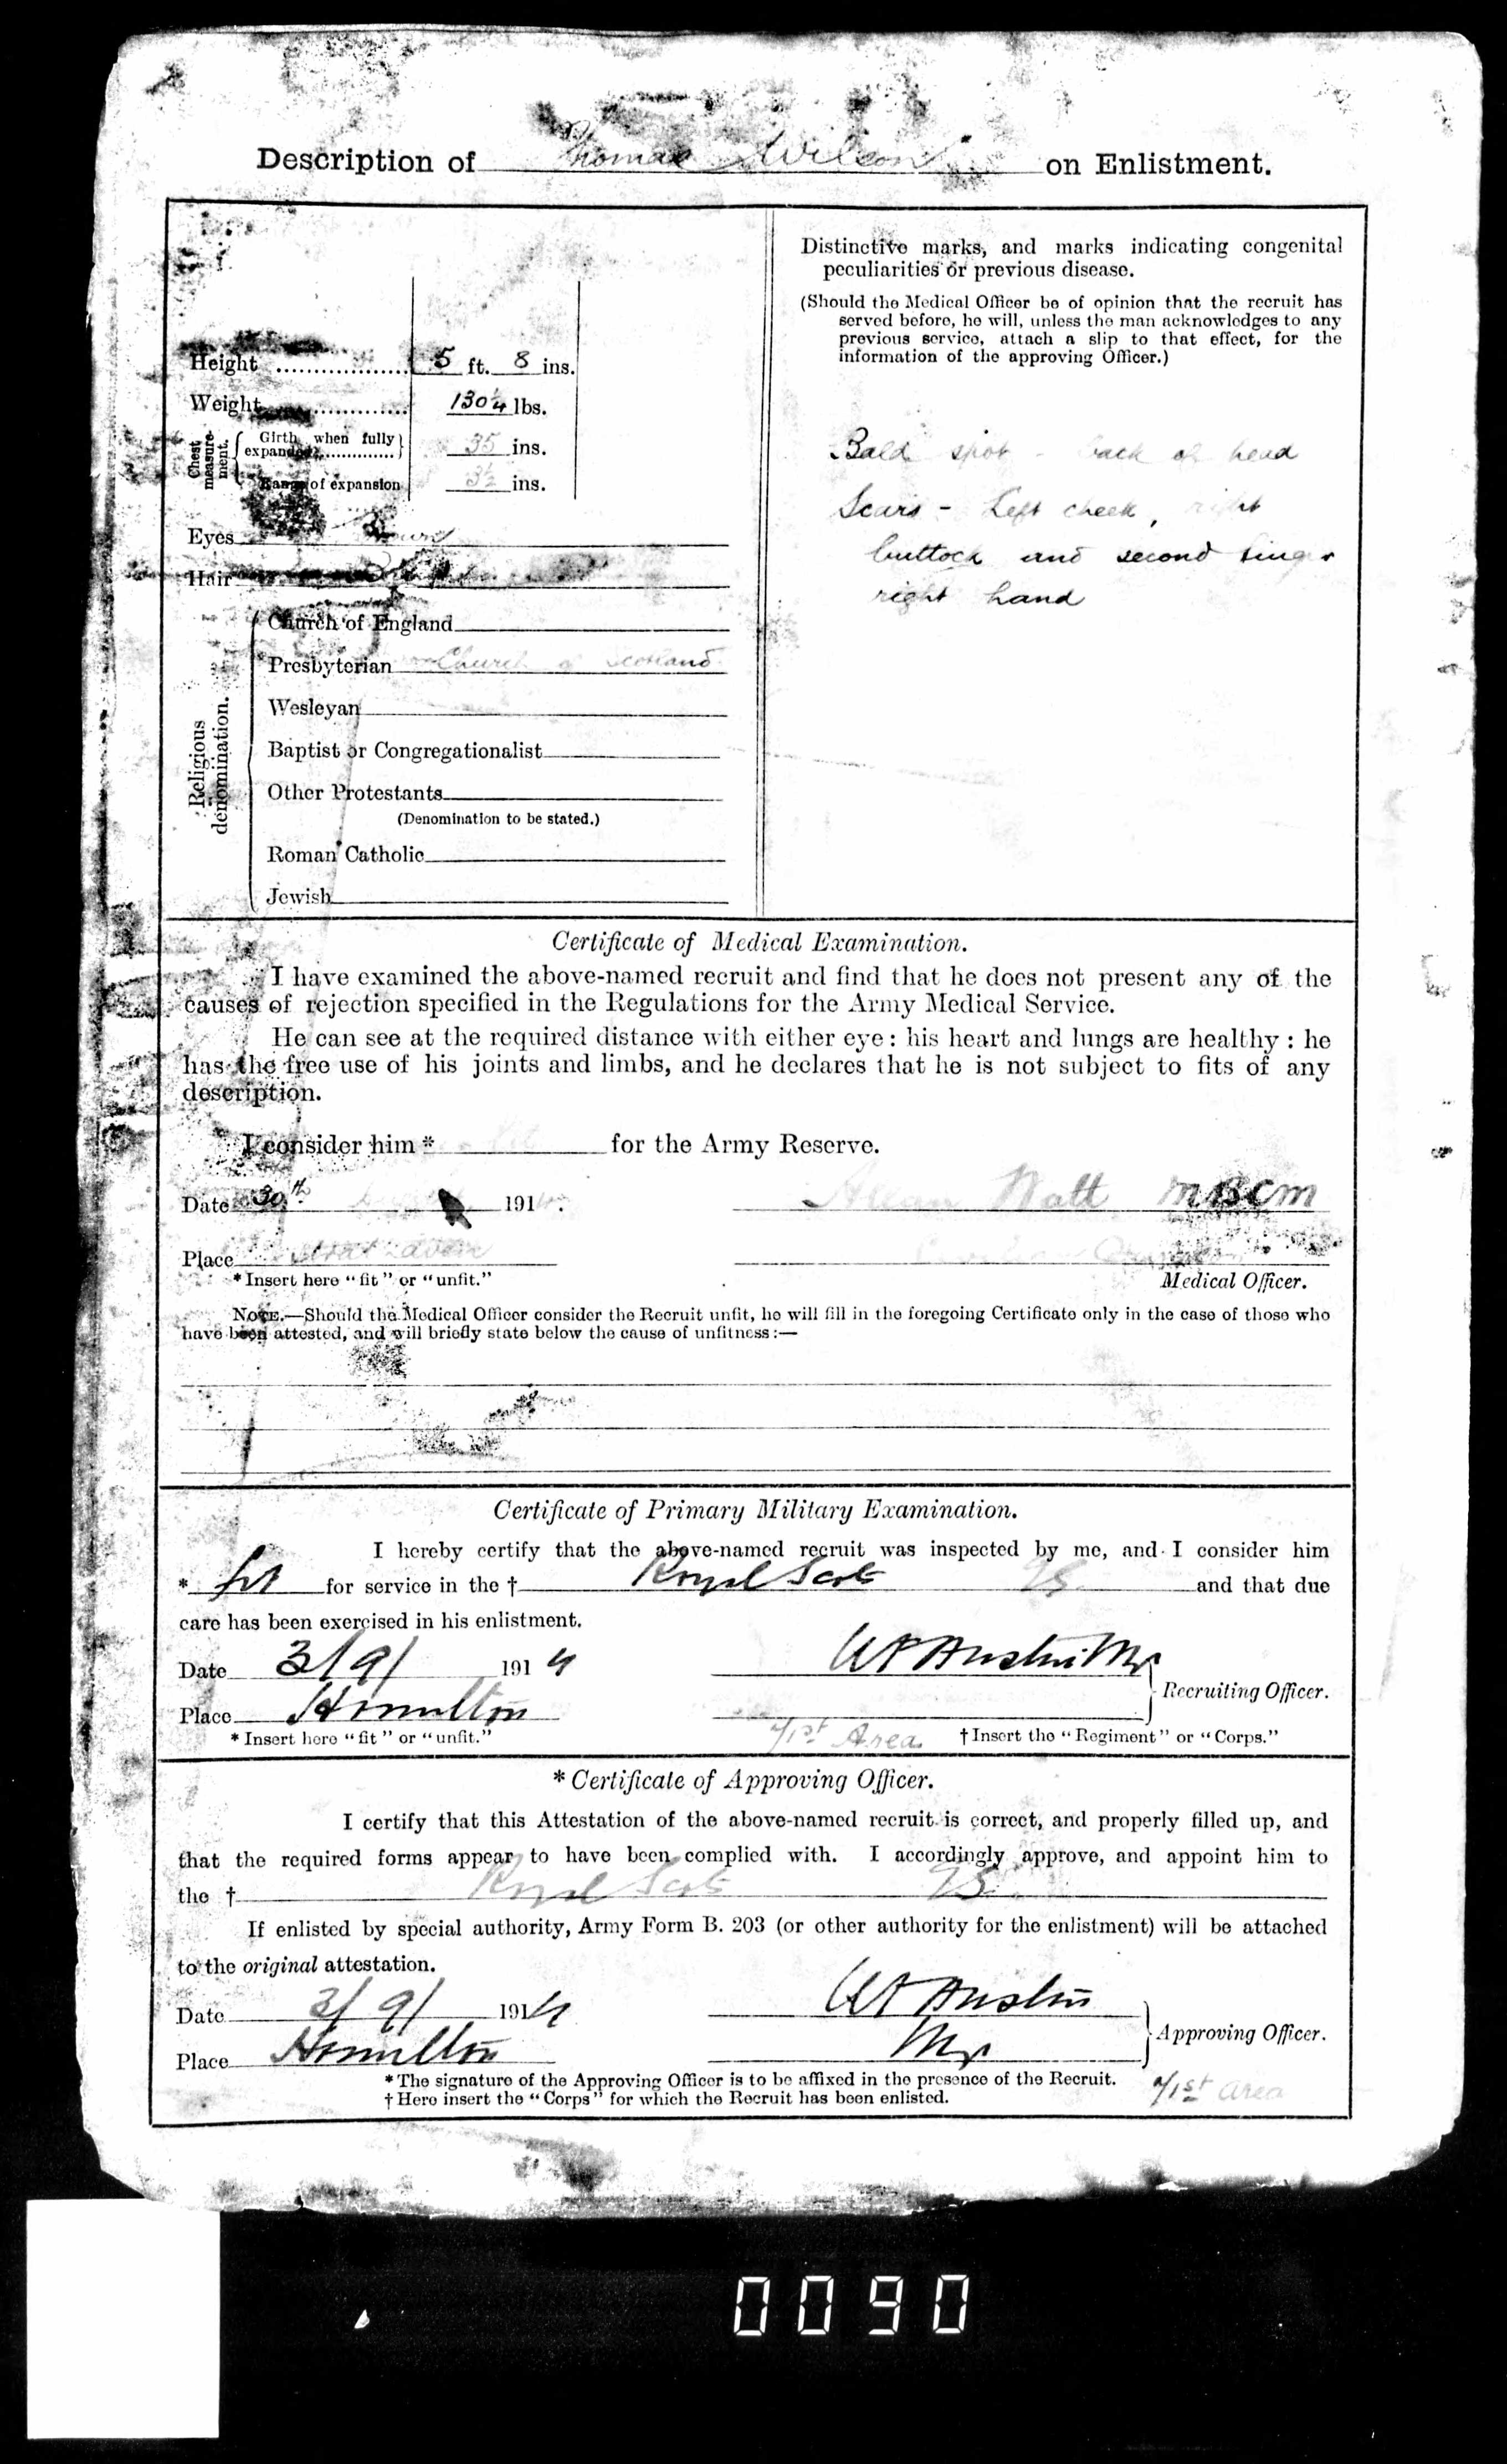 Description of Thomas Wilson on Enlistment.
Height 5 ft. 8 ins.
Weight 130¼ lbs.
Chest measurement.
Girth when fully expanded 35 ins.
Range of expansion 3½ ins.
Eyes
Hair
Religious denomination.
Church of England
Presbyterian Church of Scotland
Wesleyan
Baptist or Congregationalist
Other Protestants
(Denomination to be stated.)
Roman Catholic
Jewish
Distinctive marks, and marks indicating congenital
peculiarities or previous disease.
(Should the Medical Officer be of opinion that the recruit has
served before, he will, unless the man acknowledges to any
previous service, attach a slip to that effect, for the
information of the approving Officer.)
Bald spot - back of head
Scars - Left cheek, right
buttock and second finger
right hand
Certificate of Medical Examination.
I have examined the above-named recruit and find that he does not present any of the
causes of rejection specified in the Regulations for the Army Medical Service.
He can see at the required distance with either eye: his heart and lungs are healthy: he
has the free use of his joints and limbs, and he declares that he is not subject to fits of any
description.
I consider him * fit for the Army Reserve.
Date 30th 191
Allan Watt MBCM
Place Strathaven
* Insert here "fit" or "unfit."
Medical Officer.
NOTE.—Should the Medical Officer consider the Recruit unfit, he will fill in the foregoing Certificate only in the case of those who
have been attested, and will briefly state below the cause of unfitness:—
Certificate of Primary Military Examination.
I hereby certify that the above-named recruit was inspected by me, and I consider him
* fit for service in the † Royal Scots and that due
care has been exercised in his enlistment.
Date 3/9/ 1914
Austin Mjr
Recruiting Officer.
Place Hamilton
* Insert here "fit" or "unfit."
1st Area
† Insert the "Regiment" or "Corps."
* Certificate of Approving Officer.
I certify that this Attestation of the above-named recruit is correct, and properly filled up, and
that the required forms appear to have been complied with. I accordingly approve, and appoint him to
the † Royal Scots
If enlisted by special authority, Army Form B. 203 (or other authority for the enlistment) will be attached
to the original attestation.
Date 3/9/ 1914
Austin
Mjr
Approving Officer.
Place Hamilton
* The signature of the Approving Officer is to be affixed in the presence of the Recruit.
1st Area
† Here insert the "Corps" for which the Recruit has been enlisted.
0090